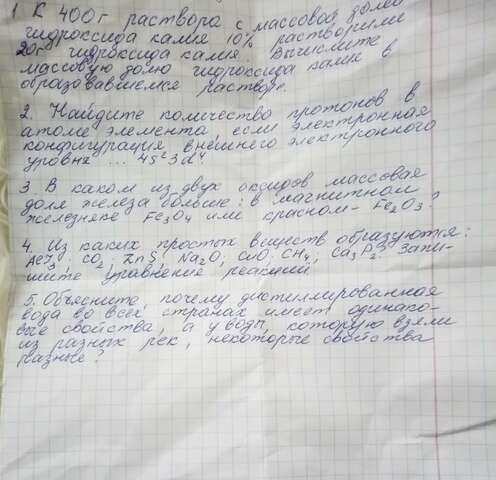 1 К 400г раствора с массовой долей
гидроксида калия 10% растворили
20г гидроксида калия. Вычислите
массовую долю гидроксида калия в
образовавшемся растворе.
2. Найдите количество протонов в
атоме элемента, если электронная
конфигурация внешнего электронного
уровня ... 4s²3d⁴
3. В каком из двух оксидов массовая
доля железа больше: в магнитном
железняке Fe₃O₄ или красном - Fe₂O₃?
4. Из каких простых веществ образуются:
AlI₃, CO₂; ZnS; Na₂O; CuO; CH₄; Ca₃P₂? Запи-
шите уравнение реакций
5. Объясните, почему дистиллированная
вода во всех странах имеет одинако-
вые свойства, а у воды, которую взяли
из разных рек, некоторые свойства
разные?